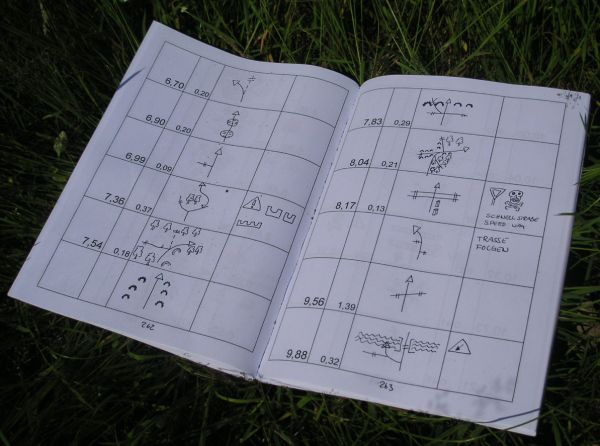 6,70 0,20
6,90 0,20
6,99 0,09
7,36 0,37
7,54 0,18
262
7,83 0,29
8,04 0,21
8,17 0,13
SCHNELLSTRAßE
TRASSE
FOLGEN
9,56 1,39
9,88 0,32
263